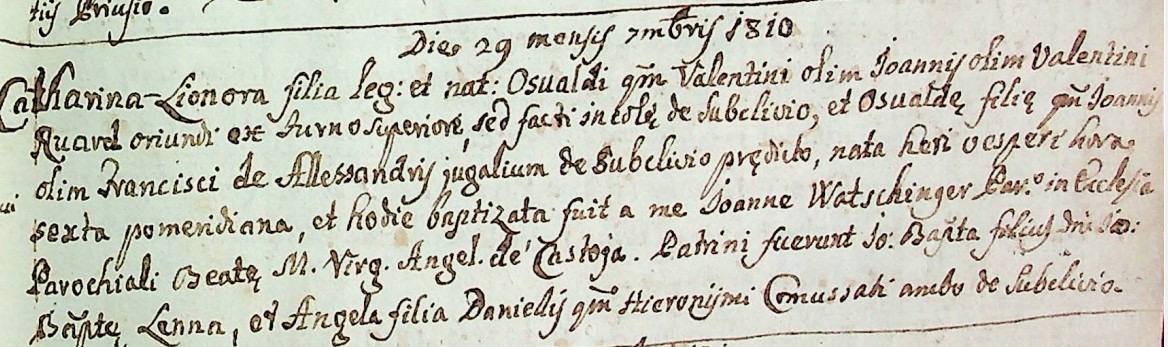 tiis Briusio.
Die 29 mensis 7mbris 1810
Catharina-Lionora filia leg: et nat: Osualdi qm̃ Valentini olim Joannis olim Valentini
Quarel oriundi ex Turno superiore, sed facti incolę de Subclivio, et Osualdę filię qm̃ Joannis
olim Francisci de Allessandris jugalium de Subclivio prędicto, nata heri vesperi hora
sexta pomeridiana, et hodie baptizata fuit a me Joanne Watschinger Par.º in Ecclesia
Parochiali Beatę M. Virg. Angel. de Castoja. Patrini fuerunt Jo: Bap̃ta filius Dñi Jo:
Bap̃tę Lenna, et Angela filia Danielis qm̃ Hieronijmi Comussati ambo de Subclivio